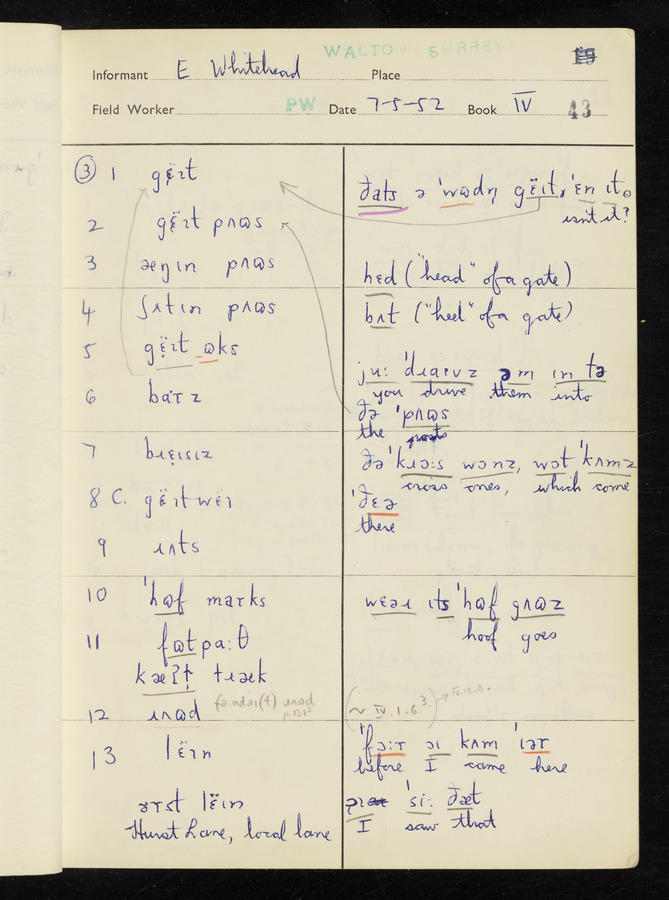 WALTON SURREY
Informant E Whitehead Place
Field Worker PW Date 7-5-52 Book IV 43
③ 1 gë̝ɪt
2 gë̝ɪt pʌɷs
3 æŋɪn pʌɷs
4 ʃʌtɪn pʌɷs
5 gë̝ɪt ɷks
6 baɾz
7 bɹɛɪsɪz
8 C. gëɪtwëɪ
9 ɹʌts
10 'hɷf marks
11 fɷtpa:θ
kæʔt tɹæk
12 ɹʌɷd ɹʌɷd
13 lëɪn
lëɪn
Hurst Lane, local lane
ðats ə 'wɷdn̩ gëɪt, 'ɛn ɪt
isn't it?
hɛd ("head" of a gate)
hɪt ("heel" of a gate)
ju: 'dɹaɪvz əm ɪn tə
you drive them into
ðə 'pʌɷs
the posts
ðə 'kɹɔ:s wɒnz, wɒt 'kʌmz
cross ones, which come
'ðɛə
there
wɛəɹ ɪts 'hɷf gʌɷz
hoof goes
(~ IV.1.6³.) → IV.12.3.
kʌm 'ɪəɾ
before I came here
'si: ðæt
I saw that